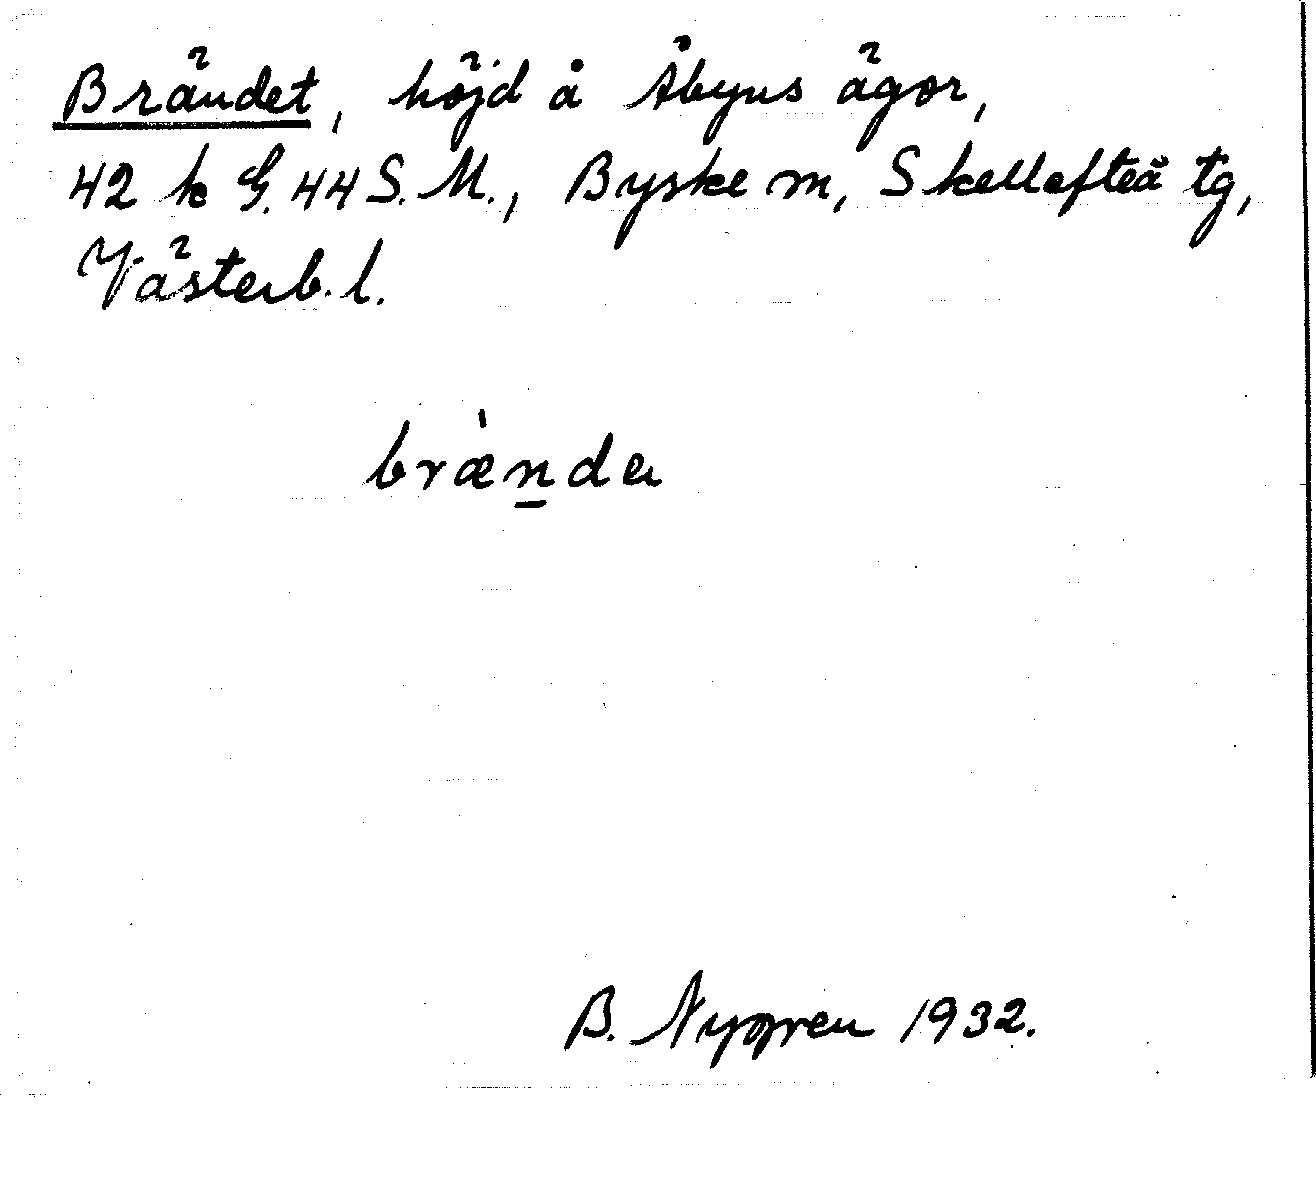 Brändet, höjd å Åbyns ägor,
42 k G. 44 S. M., Byske m, Skellefteå tg,
Västerb. l.
brænda
B. Nygren 1932.